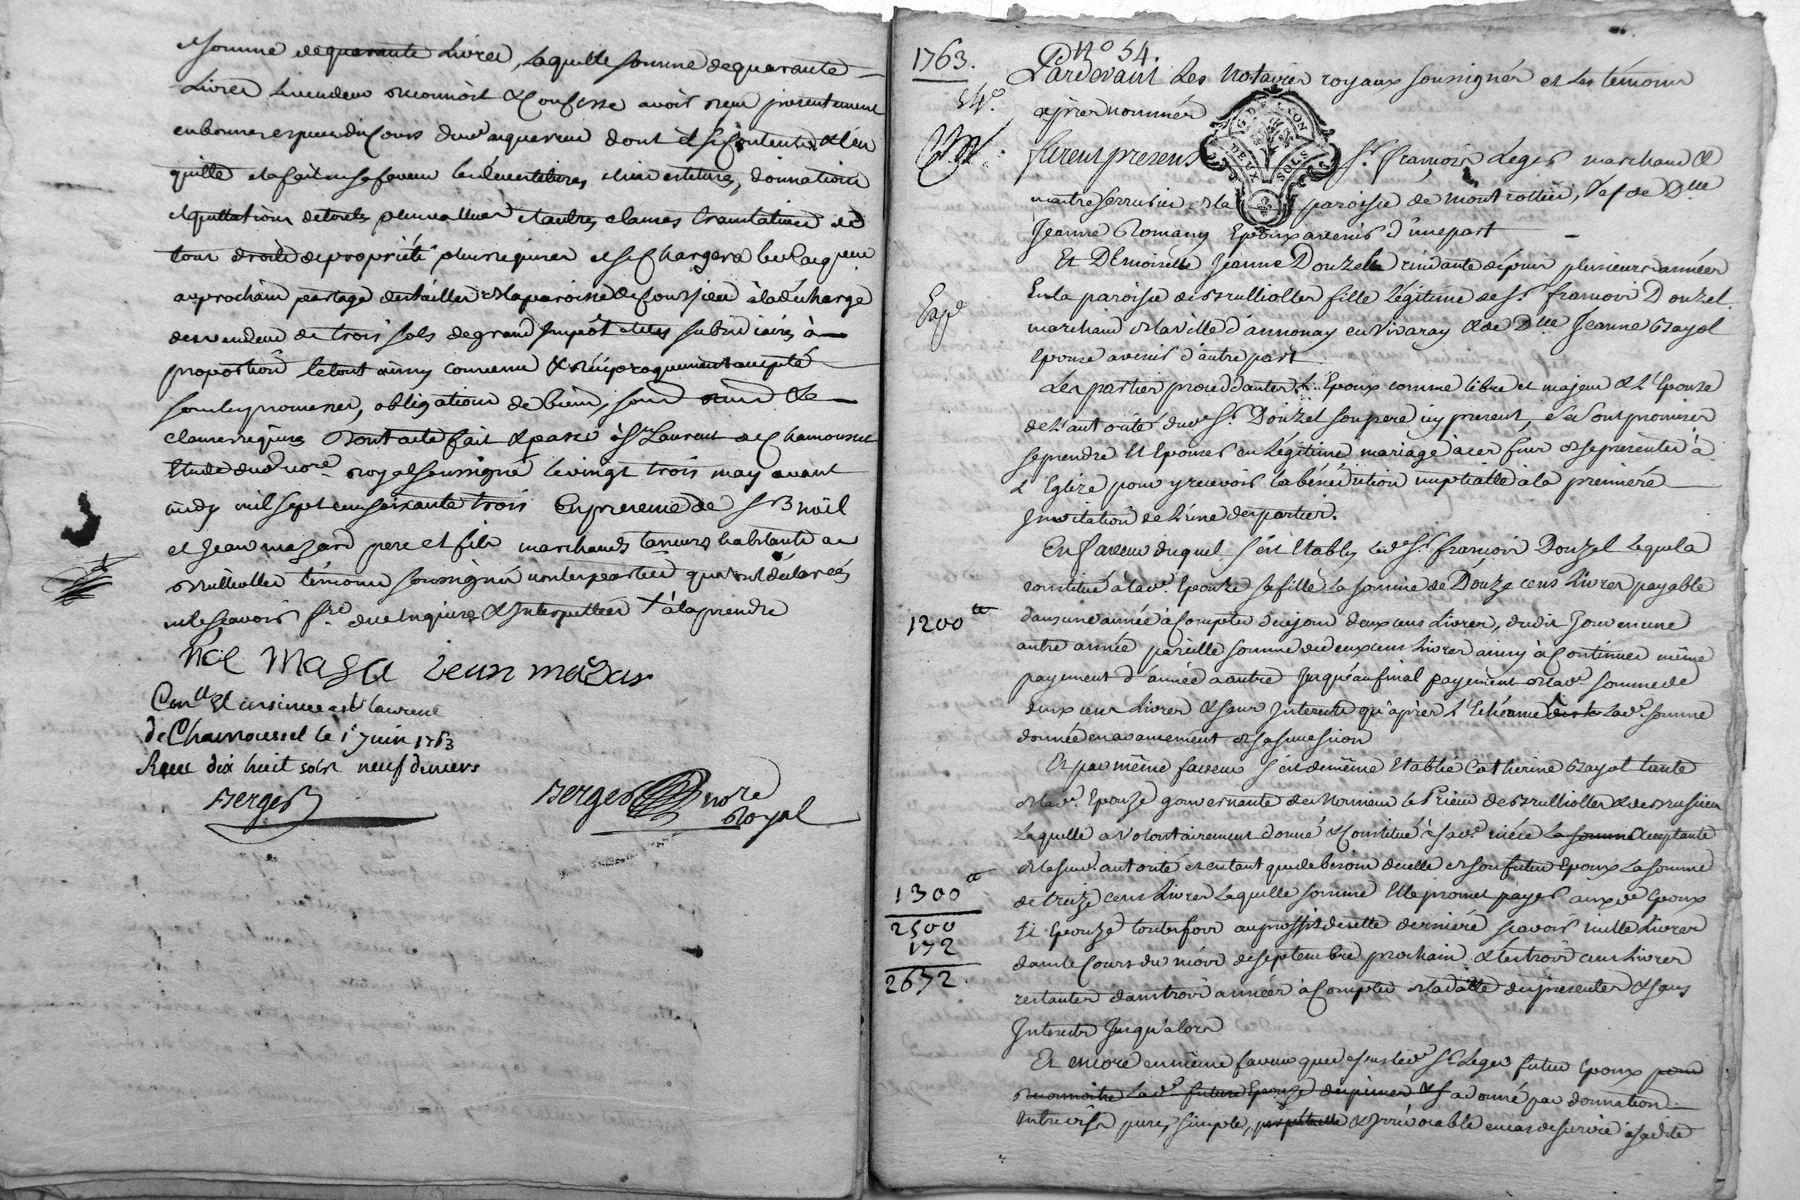 somme de quarante Livres, laquelle somme de quarante
Livres le vendeur reconnoit & confesse avoir reçu presentement
en bonnes especes du Cours dud. acquereur dont il se contente & l'en
quitte
tous droits de propriété plus requises et se Chargera led. acquereur
au prochain partage des tailles de la paroisse de Coursieu à la décharge
du vendeur de trois sols de grand Impôt et les subsidiaires à
proportion le tout ainsy convenu & réciproquement accepté
obligations de biens,
clauses requises Dont acte fait & passé à St Laurent de Chamousset
Etude dud. nore. royal soussigné le vingt trois may avant
midy mil sept cens soixante trois En presence de Sr Noël
et Jean mazard pere et fils marchands tanneurs habitants a
Brulliolles témoins soussignés non les parties qui ont déclarés
ne le scavoir fre. de ce Enquises & Interpellées
Noel Masa Jean mazar
Con.lle et insinué a st laurent
de Chamousset le 1r Juin 1763
Receu dix huit sols neuf deniers
Berger
Berger nore
Royal
1763.
N° 54.
Pardevant Les Notaires royaux soussignés et les témoins
54e.
après nommés
furent presens Sr. françois Leger marchand &
G. DE LYON
DEUX SOLS
maitre serrurier de la paroisse de Montrottier, Vef de Dlle
Jeanne Romany Epoux avenir d'une part
Et Demoiselle Jeanne Douzel residante depuis plusieurs années
Exp.
En la paroisse de Brulliolles fille légitime de Sr. françois Douzel
marchand de la ville d'annonay en Vivaray & de Dlle Jeanne Bayol
Epouse avenir d'autre part
Les parties procedantes L'Epoux comme libre et majeur & L'Epouse
de L'autorité dud. Sr. Douzel son pere icy present, se sont promises
se prendre et Epouser en Légitime mariage à ces fins de se presenter à
L'Eglise pour y recevoir la bénédiction nuptialle à la premiere
Invitation de L'une des parties.
En faveur duquel s'est Etably led. Sr. françois Douzel lequel a
constitué à lad. Epouse sa fille La somme de Douze cens Livres payable
1200 tt
dans une année à Compter de ce jour deux cens Livres, dudit Jour en une
autre année pareille somme de deux cens Livres ainsy à Continuer même
payement d'année à autre Jusqu'au final payement de lad. somme de
deux cens Livres & sans Interests qu'après L'Echéance lad. somme
donnée en avancement de sa succession
Et par même faveur s'est de même Etablie Catherine Bayol tante
de lad. Epouse gouvernante de Monsieur le Prieur de Brulliolles
Laquelle a volontairement donné & Constitué à sad. niéce La somme acceptante
de lasusd. autorité et en tant que de besoin de celle de son futur Epoux La somme
1300 tt
de treize cens Livres Laquelle somme Elle promet payer auxd. Epoux
2500
et Epouze toutesfois au proffit de cette derniere scavoir mille Livres
172
dans le Cours du mois de septembre prochain & les trois cens Livres
2672.
restantes dans trois années à Compter de la datte des presentes & sans
Interests Jusqu'alors
Et encore en même faveur que dessus led. Sr Leger futur Epoux pour
reconnoitre Lad. future Epouze a donné par donnation
Entrevifs pure, simple, perpetuelle & irrévocable en cas de survie à sadite